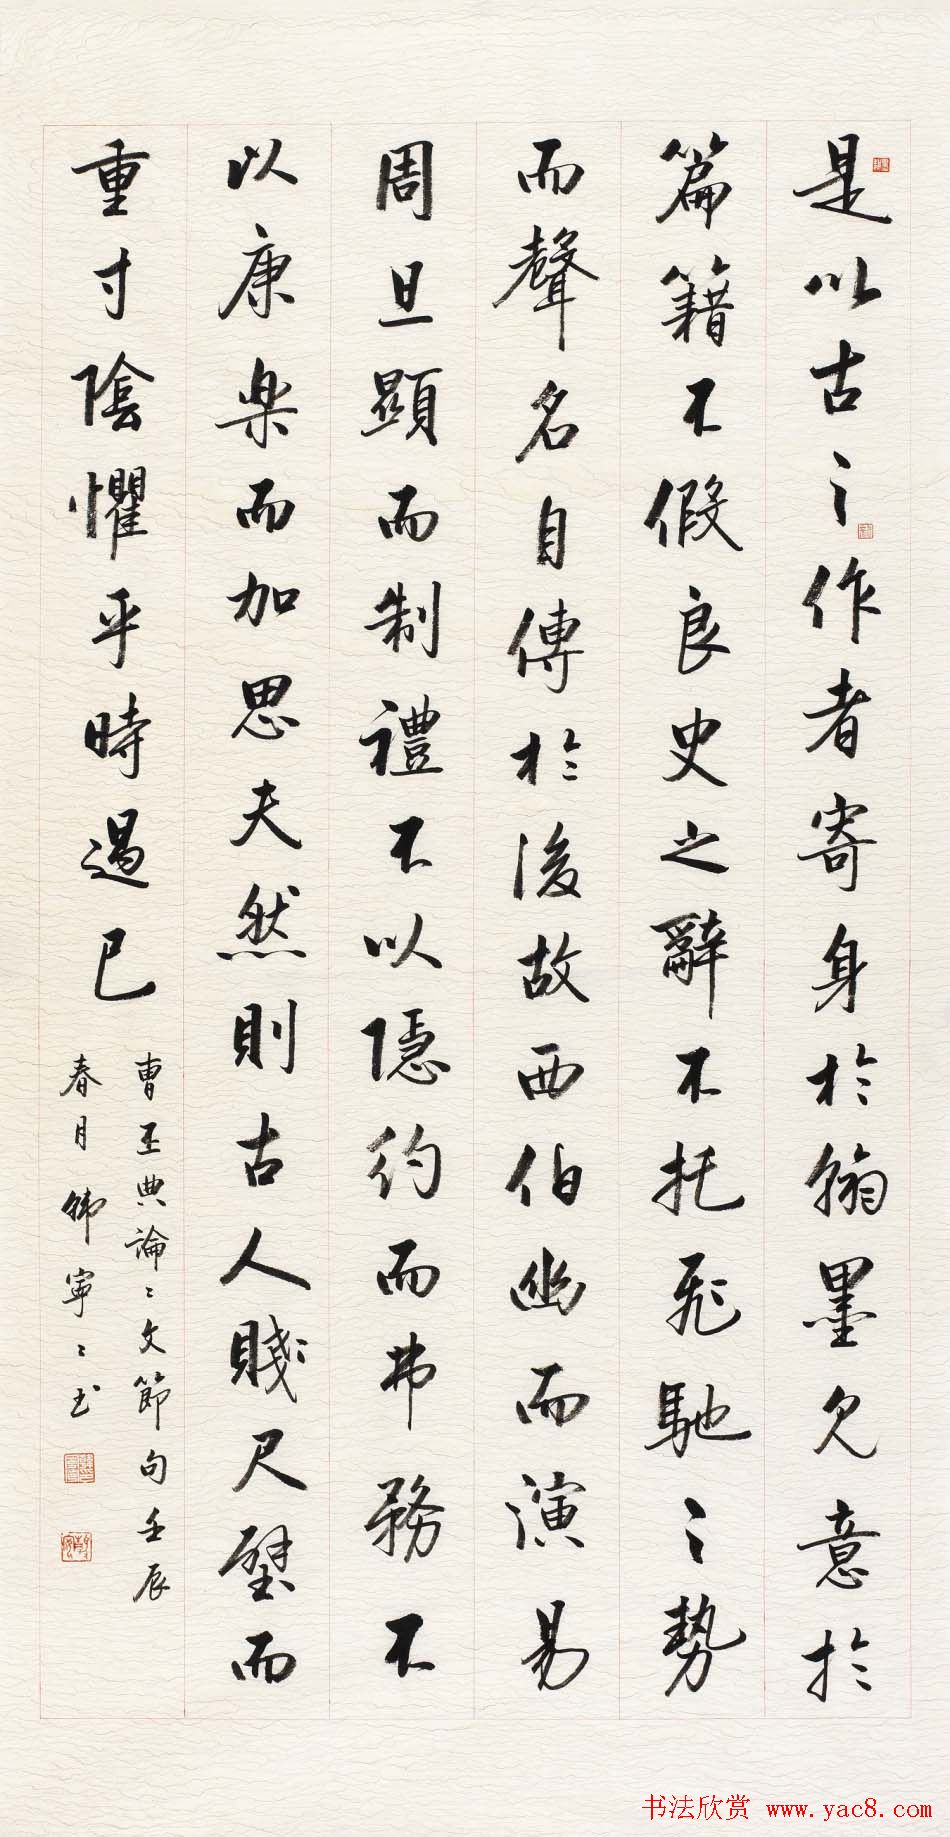 是以古之作者寄身於翰墨見意於
篇籍不假良史之辭不托飛馳之勢
而聲名自傳於後故西伯幽而演易
周旦顯而制禮不以隱約而弗務不
以康樂而加思夫然則古人賤尺璧而
重寸陰懼乎時過已
曹丕典論論文節句壬辰
春月韩寧寧书
书法欣赏 www.yac8.com